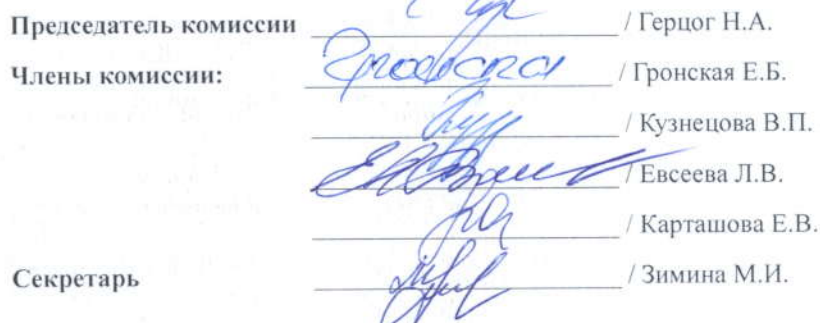 Председатель комиссии / Герцог Н.А.
Члены комиссии: / Гронская Е.Б.
/ Кузнецова В.П.
/ Евсеева Л.В.
/ Карташова Е.В.
Секретарь / Зимина М.И.